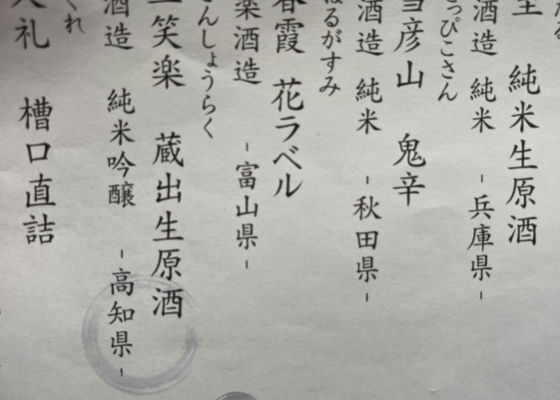 純米生原酒
酒造 純米 -兵庫県-
っぴこさん
彦山 鬼辛
酒造 純米 -秋田県-
はるがすみ
春霞 花ラベル
楽酒造 -富山県-
さんしょうらく
三笑楽 蔵出生原酒
酒造 純米吟醸 -高知県-
くれ
久礼 槽口直詰